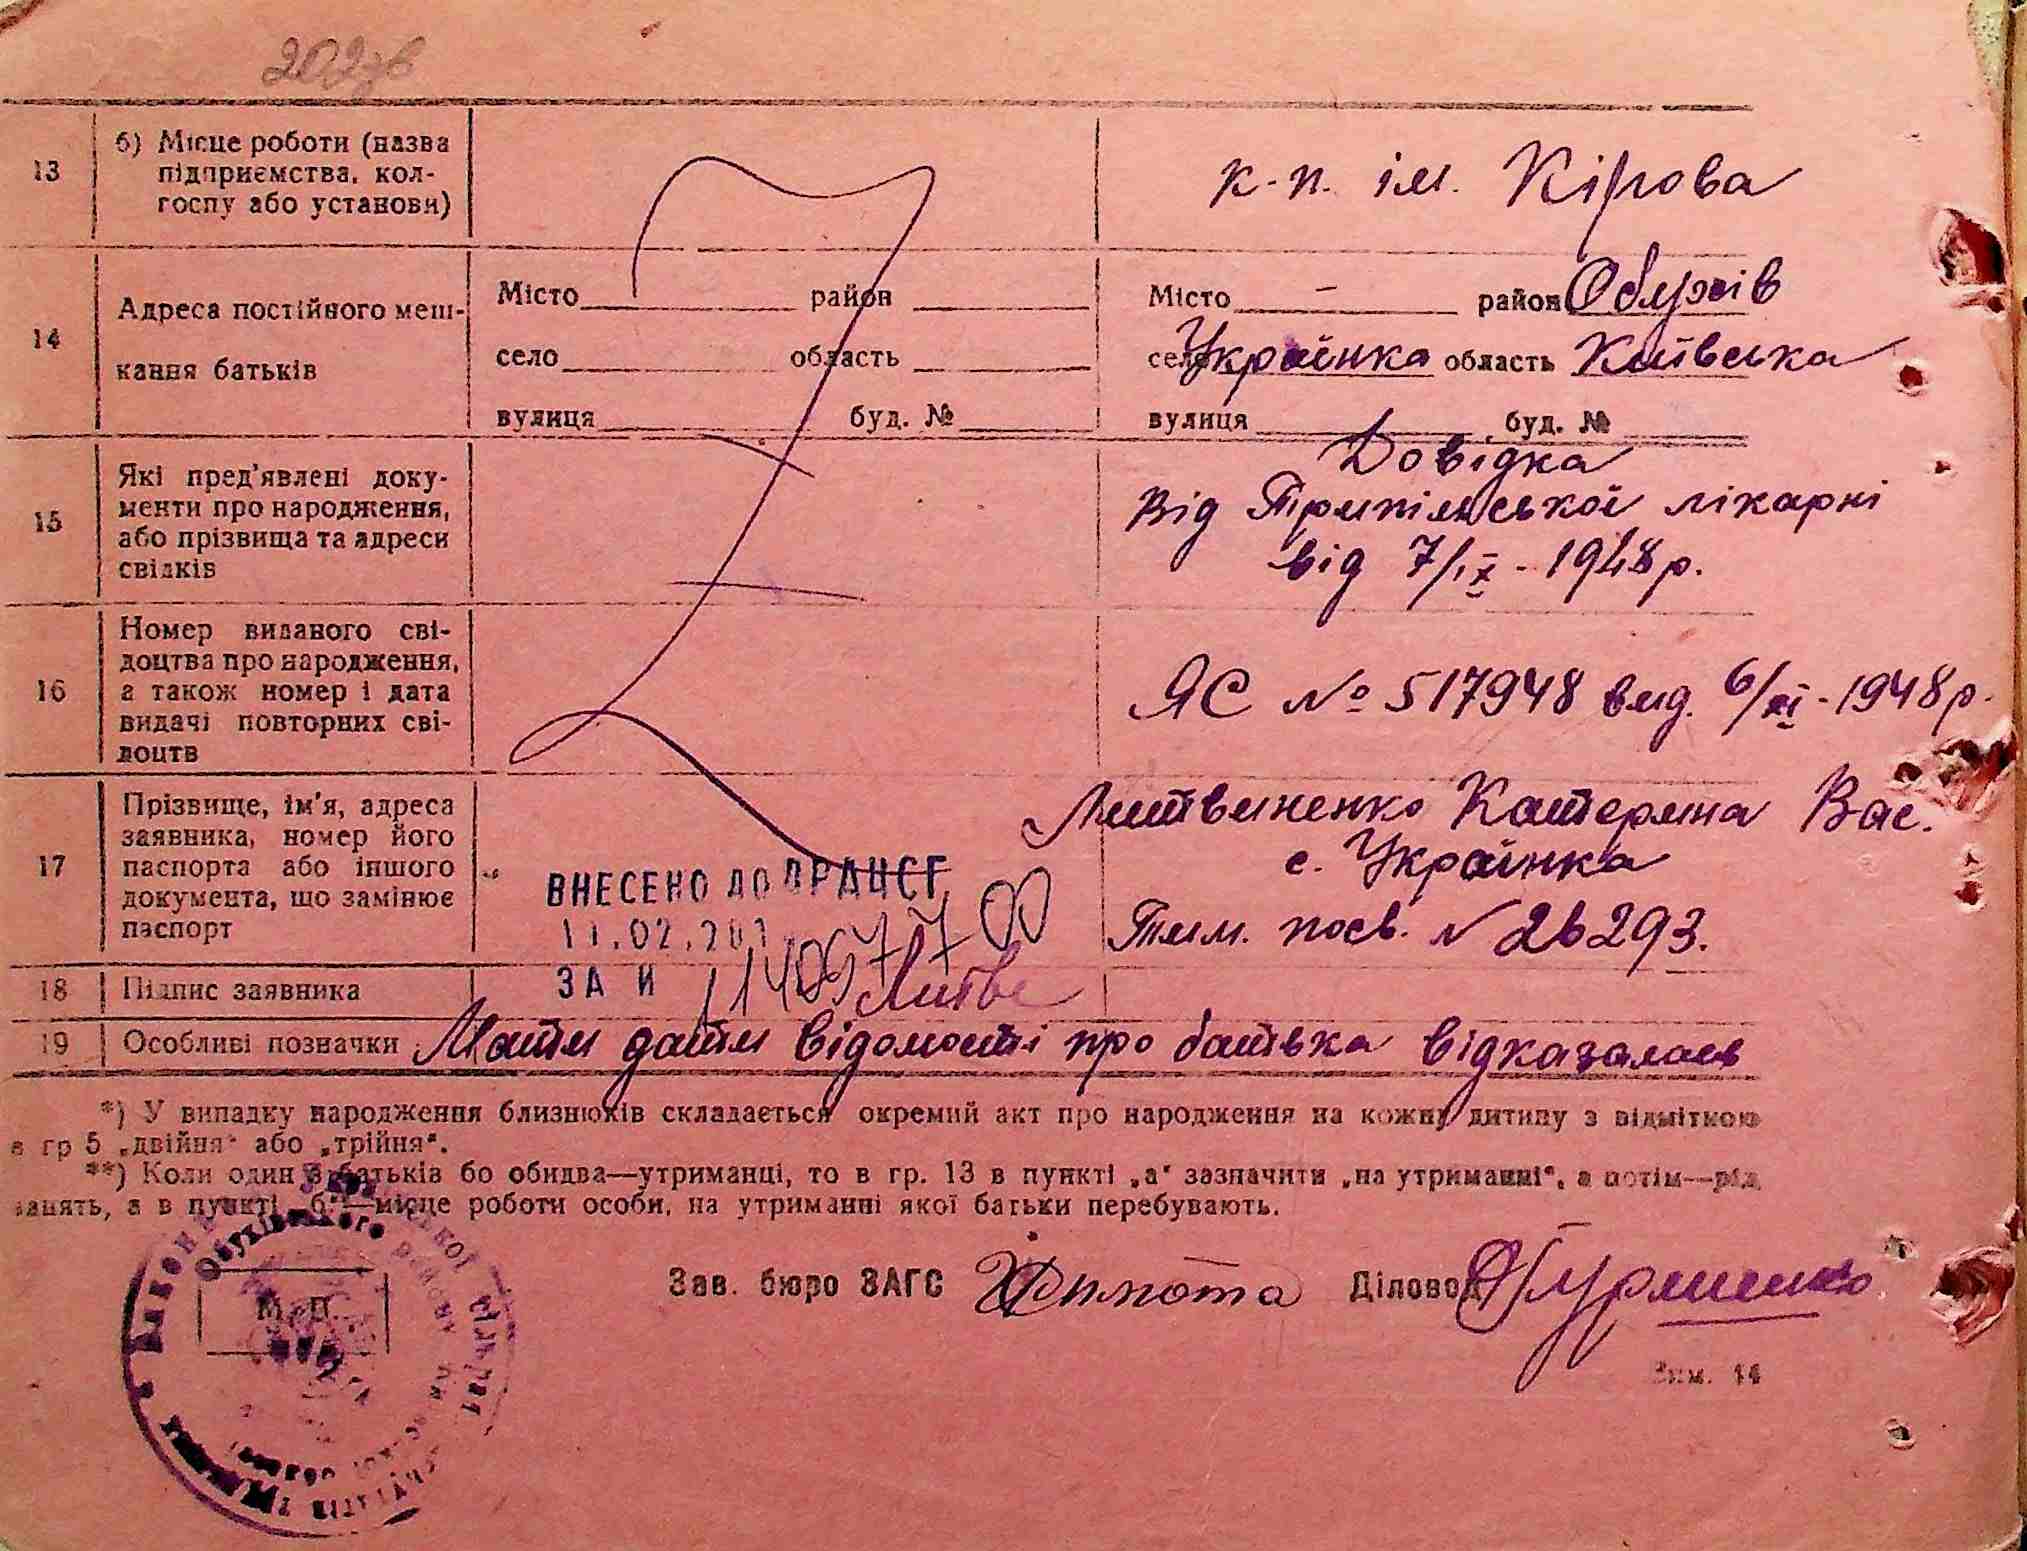 202зв
13
б) Місце роботи (назва
підприємства, кол-
госпу або установи)
к-п. ім. Кірова
14
Адреса постійного меш-
кання батьків
Місто район
село область
вулиця буд. №
Місто - район Обухів
село Українка область Київська
вулиця буд. №
15
Які пред'явлені доку-
менти про народження,
або прізвища та адреси
свідків
Довідка
від Трипільської лікарні
від 7/ІХ - 1948 р.
16
Номер виданого сві-
доцтва про народження,
а також номер і дата
видачі повторних сві-
доцтв
ЯС № 517948 вид. 6/ХІ - 1948 р.
17
Прізвище, ім'я, адреса
заявника, номер його
паспорта або іншого
документа, що замінює
паспорт
Литвиненко Катерина Вас.
с. Українка
Тим. посв. № 26293.
ВНЕСЕНО ДО ДРАЦСГ
11.02.201
ЗА №
18
Підпис заявника
Литве
19
Особливі позначки Мати дати відомості про батька відказалась
*) У випадку народження близнюків складається окремий акт про народження на кожну дитину з відміткою
в гр 5 „двійня" або „трійня".
**) Коли один з батьків бо обидва—утриманці, то в гр. 13 в пункті „а" зазначити „на утриманні", а потім—рід
занять, а в пункті „б"—місце роботи особи, на утриманні якої батьки перебувають.
Зав. бюро ЗАГС Діловод
М. П.
Обухівського району
Зим. 14